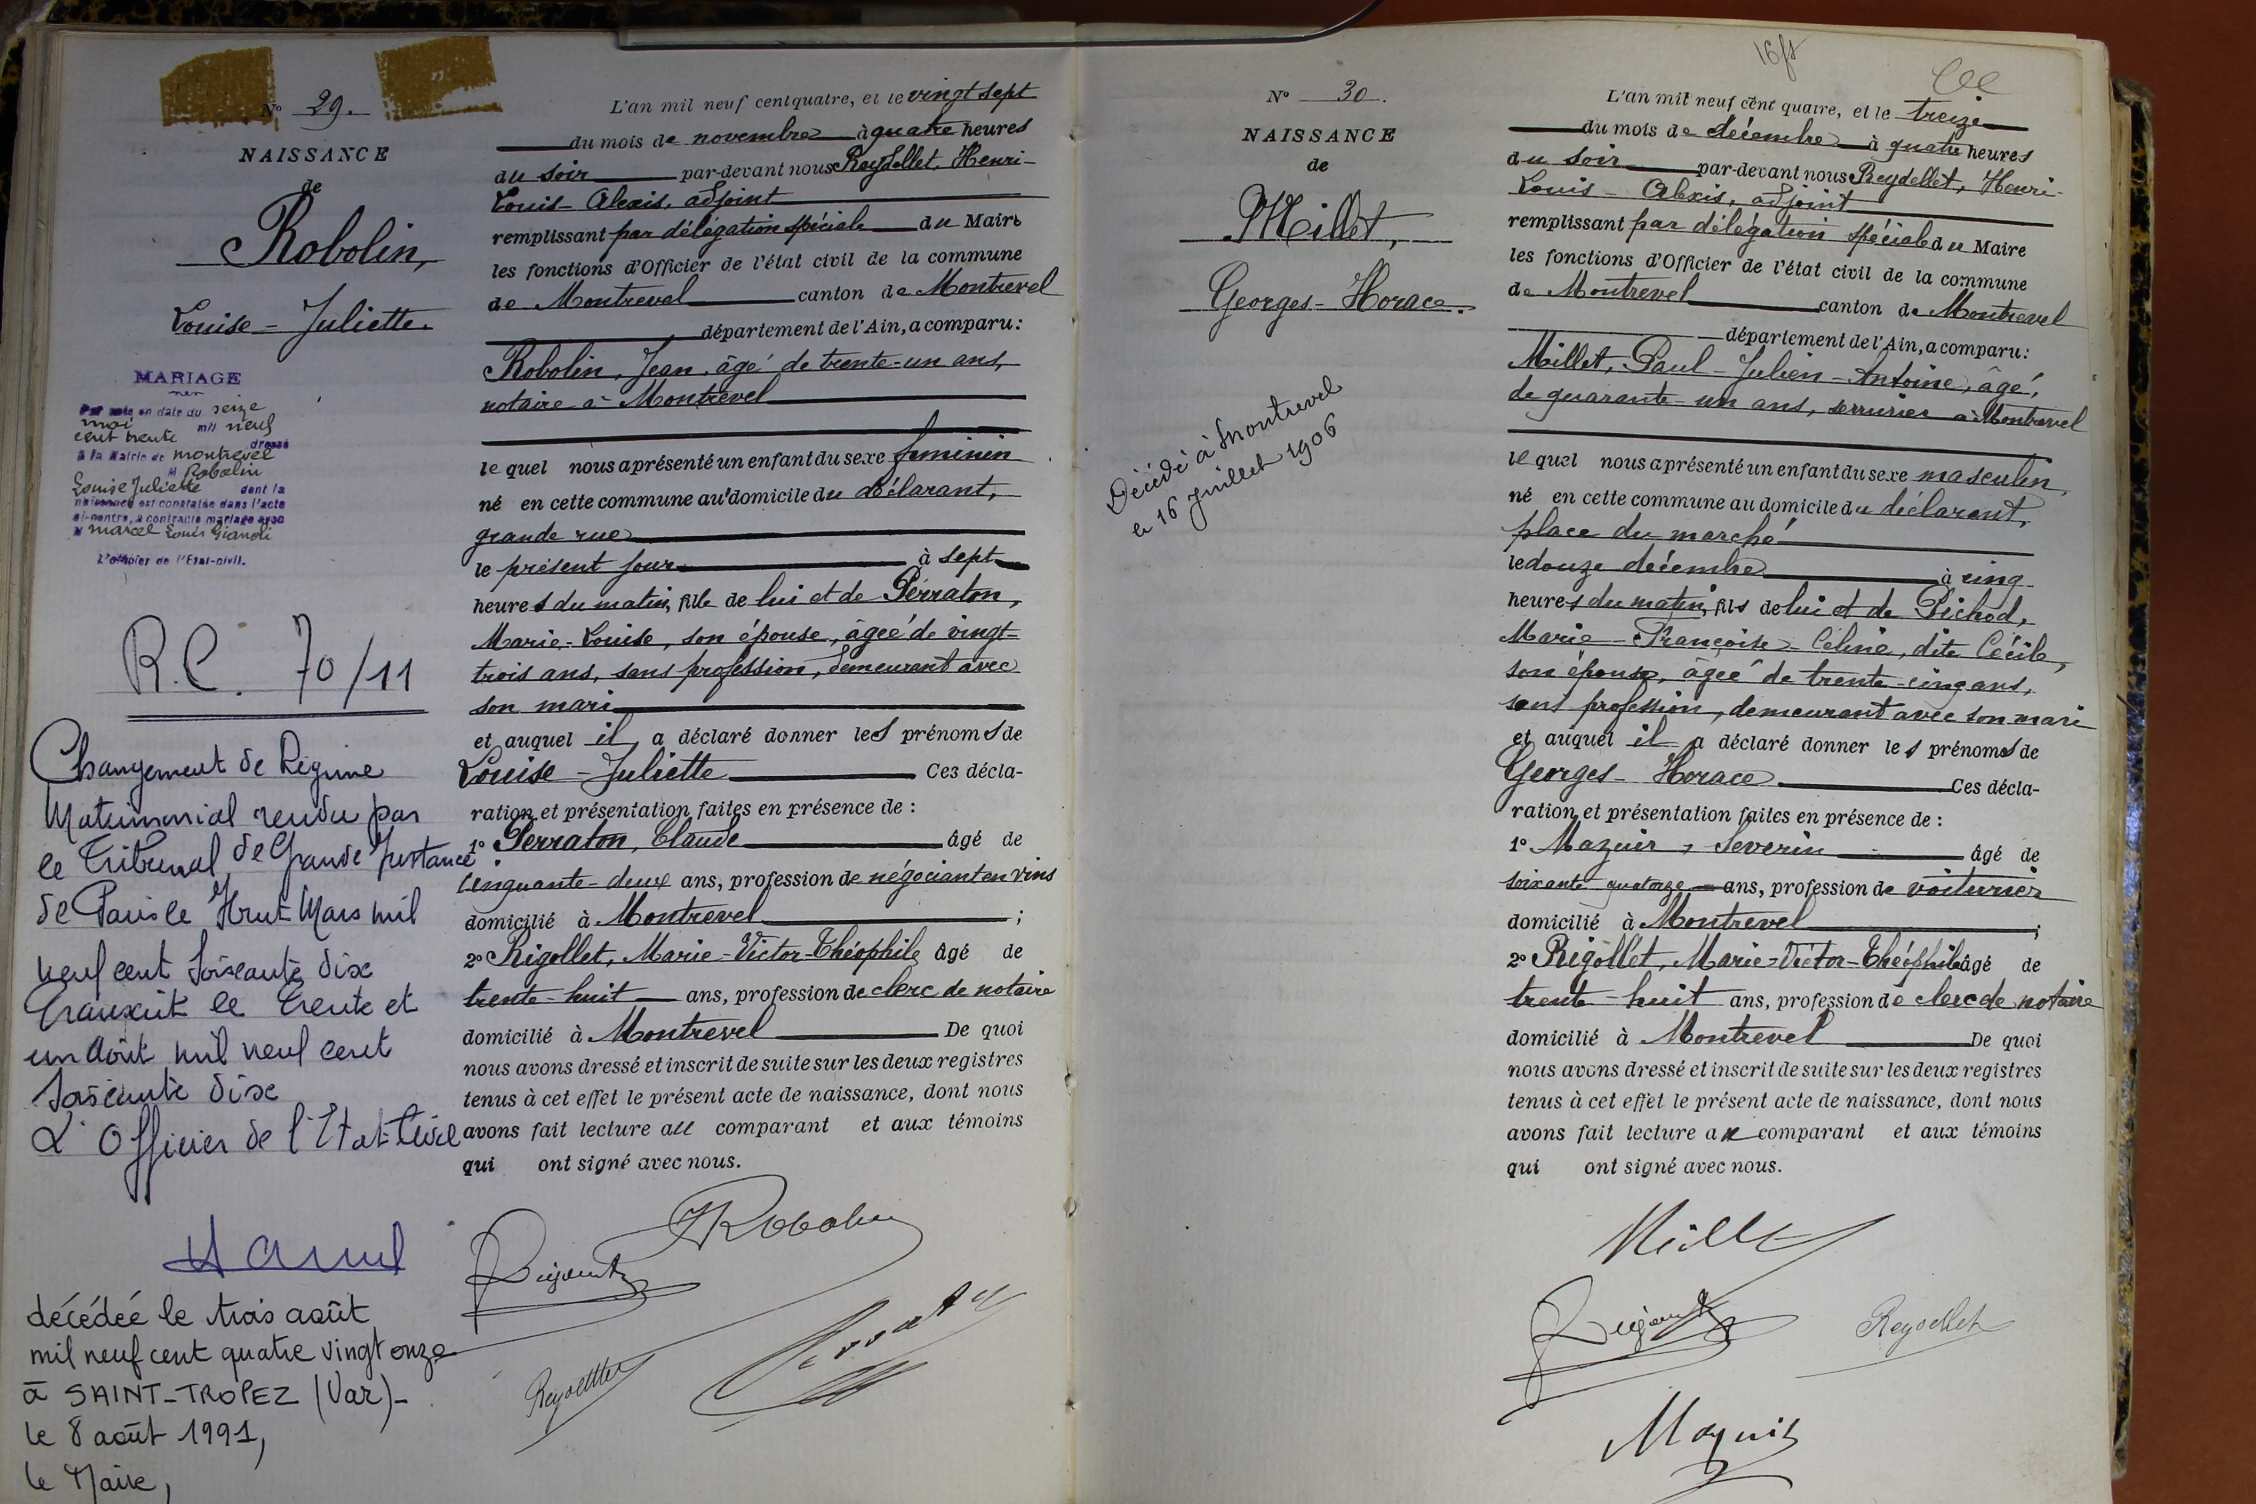 Nº 29.
NAISSANCE
de
Robolin,
Louise-Juliette.
MARIAGE
Par acte en date du seize
mai mil neuf
cent trente dressé
à la Mairie de montrevel
M Robolin
Louise Juliette dont la
naissance est constatée dans l'acte
ci-contre, a contracté mariage avec
M marcel Louis Gianoli
L'officier de l'Etat-civil.
R.C. 70/11
Changement de Régime
Matrimonial rendu par
le Tribunal de Grande Instance
de Paris le Huit Mars mil
neuf cent soixante dix
Transcrit le Trente et
un Août mil neuf cent
soixante dix
L'Officier de l'Etat-Civil
décédée le trois août
mil neuf cent quatre vingt onze
à SAINT-TROPEZ (Var)-
le 8 août 1991,
le Maire,
L'an mil neuf cent quatre, et le vingt sept
du mois de novembre à quatre heures
du soir par-devant nous Reydellet, Henri-
Louis-Alexis, adjoint
remplissant par délégation spéciale du Maire
les fonctions d'Officier de l'état civil de la commune
de Montrevel canton de Montrevel
département de l'Ain, a comparu:
Robolin, Jean, âgé de trente-un ans,
notaire à Montrevel
le quel nous a présenté un enfant du sexe féminin
né en cette commune au domicile du déclarant,
grande rue
le présent jour à sept
heures du matin, fille de lui et de Perraton,
Marie-Louise, son épouse, âgée de vingt-
trois ans, sans profession, demeurant avec
son mari
et auquel il a déclaré donner les prénoms de
Louise-Juliette Ces décla-
ration et présentation faites en présence de :
1º Perraton, Claude âgé de
cinquante-deux ans, profession de négociant en vins
domicilié à Montrevel ;
2º Rigollet, Marie-Victor-Théophile âgé de
trente-huit ans, profession de clerc de notaire
domicilié à Montrevel De quoi
nous avons dressé et inscrit de suite sur les deux registres
tenus à cet effet le présent acte de naissance, dont nous
avons fait lecture au comparant et aux témoins
qui ont signé avec nous.
JRobolin
Reydellet
16 ft
Nº 30.
NAISSANCE
de
Millet,
Georges-Horace.
Décédé à Montrevel
le 16 Juillet 1906
L'an mil neuf cent quatre, et le treize
du mois de décembre à quatre heures
du soir par-devant nous Reydellet, Henri-
Louis-Alexis, adjoint
remplissant par délégation spéciale du Maire
les fonctions d'Officier de l'état civil de la commune
de Montrevel canton de Montrevel
département de l'Ain, a comparu:
Millet, Paul-Julien-Antoine, âgé,
de quarante-un ans, serrurier à Montrevel
le quel nous a présenté un enfant du sexe masculin,
né en cette commune au domicile du déclarant,
place du marché
le douze décembre à cinq
heures du matin, fils de lui et de Pichod,
Marie-Françoise-Céline, dite Cécile,
son épouse, âgée de trente-cinq ans,
sans profession, demeurant avec son mari
et auquel il a déclaré donner les prénoms de
Georges-Horace Ces décla-
ration et présentation faites en présence de :
1º Mazuir, Severin âgé de
soixante quatorze ans, profession de voiturier
domicilié à Montrevel ;
2º Rigollet, Marie-Victor-Théophile âgé de
trente-huit ans, profession de clerc de notaire
domicilié à Montrevel De quoi
nous avons dressé et inscrit de suite sur les deux registres
tenus à cet effet le présent acte de naissance, dont nous
avons fait lecture au comparant et aux témoins
qui ont signé avec nous.
Millet
Reydellet
Mazuir